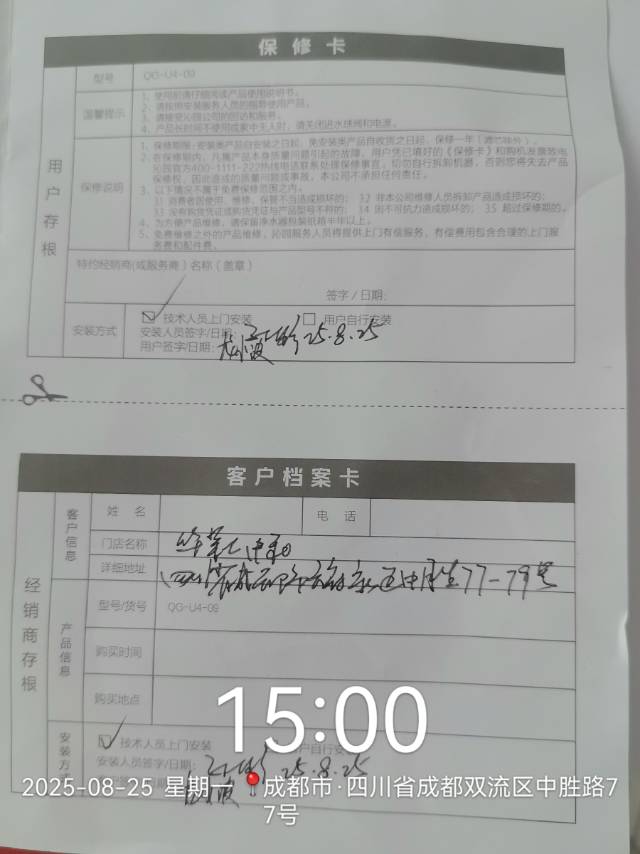 保修卡
用户存根
型号 QG-U4-09
温馨提示
1、使用前请仔细阅读产品使用说明书。
2、请按照安装服务人员的指导使用产品。
3、请接受沁园公司的回访和服务。
4、产品长时间不使用或家中无人时，请关闭进水球阀和电源。
保修说明
1、保修期限：安装类产品自安装之日起，免安装类产品自收货之日起，保修一年（滤芯除外）。
2、在保修期内，凡属产品本身质量问题引起的故障，用户凭已填好的《保修卡》和购机发票致电
沁园官方400-1111-222热线电话联系处理保修事宜，切勿自行拆卸机器，否则您将失去产品
保修权，因此造成的质量问题或事故，本公司不承担任何责任。
3、以下情况不属于免费保修范围之内。
3.1 消费者因使用、维修、保管不当造成损坏的； 3.2 非本公司维修人员拆卸产品造成损坏的；
3.3 没有购货凭证或购货凭证与产品型号不符的； 3.4 因不可抗力造成损坏的； 3.5 超过保修期的。
4、为方便产品维修，请保留净水器包装纸箱半年以上。
5、免费维修之外的产品维修，沁园服务人员将提供上门有偿服务，有偿费用包含合理的上门服
务费和配件费。
特约经销商(或服务商）名称（盖章）
签字 / 日期：
安装方式
技术人员上门安装 用户自行安装
安装人员签字/日期： 25.8.25
用户签字/日期：
客户档案卡
经销商存根
客户信息
姓 名 电 话
门店名称
详细地址 77-79号
产品信息
型号/货号 QG-U4-09
购买时间
购买地点
15:00
安装方式
技术人员上门安装 户自行安
安装人员签字/日期： 25.8.25
2025-08-25 星期一 成都市·四川省成都双流区中胜路7
7号